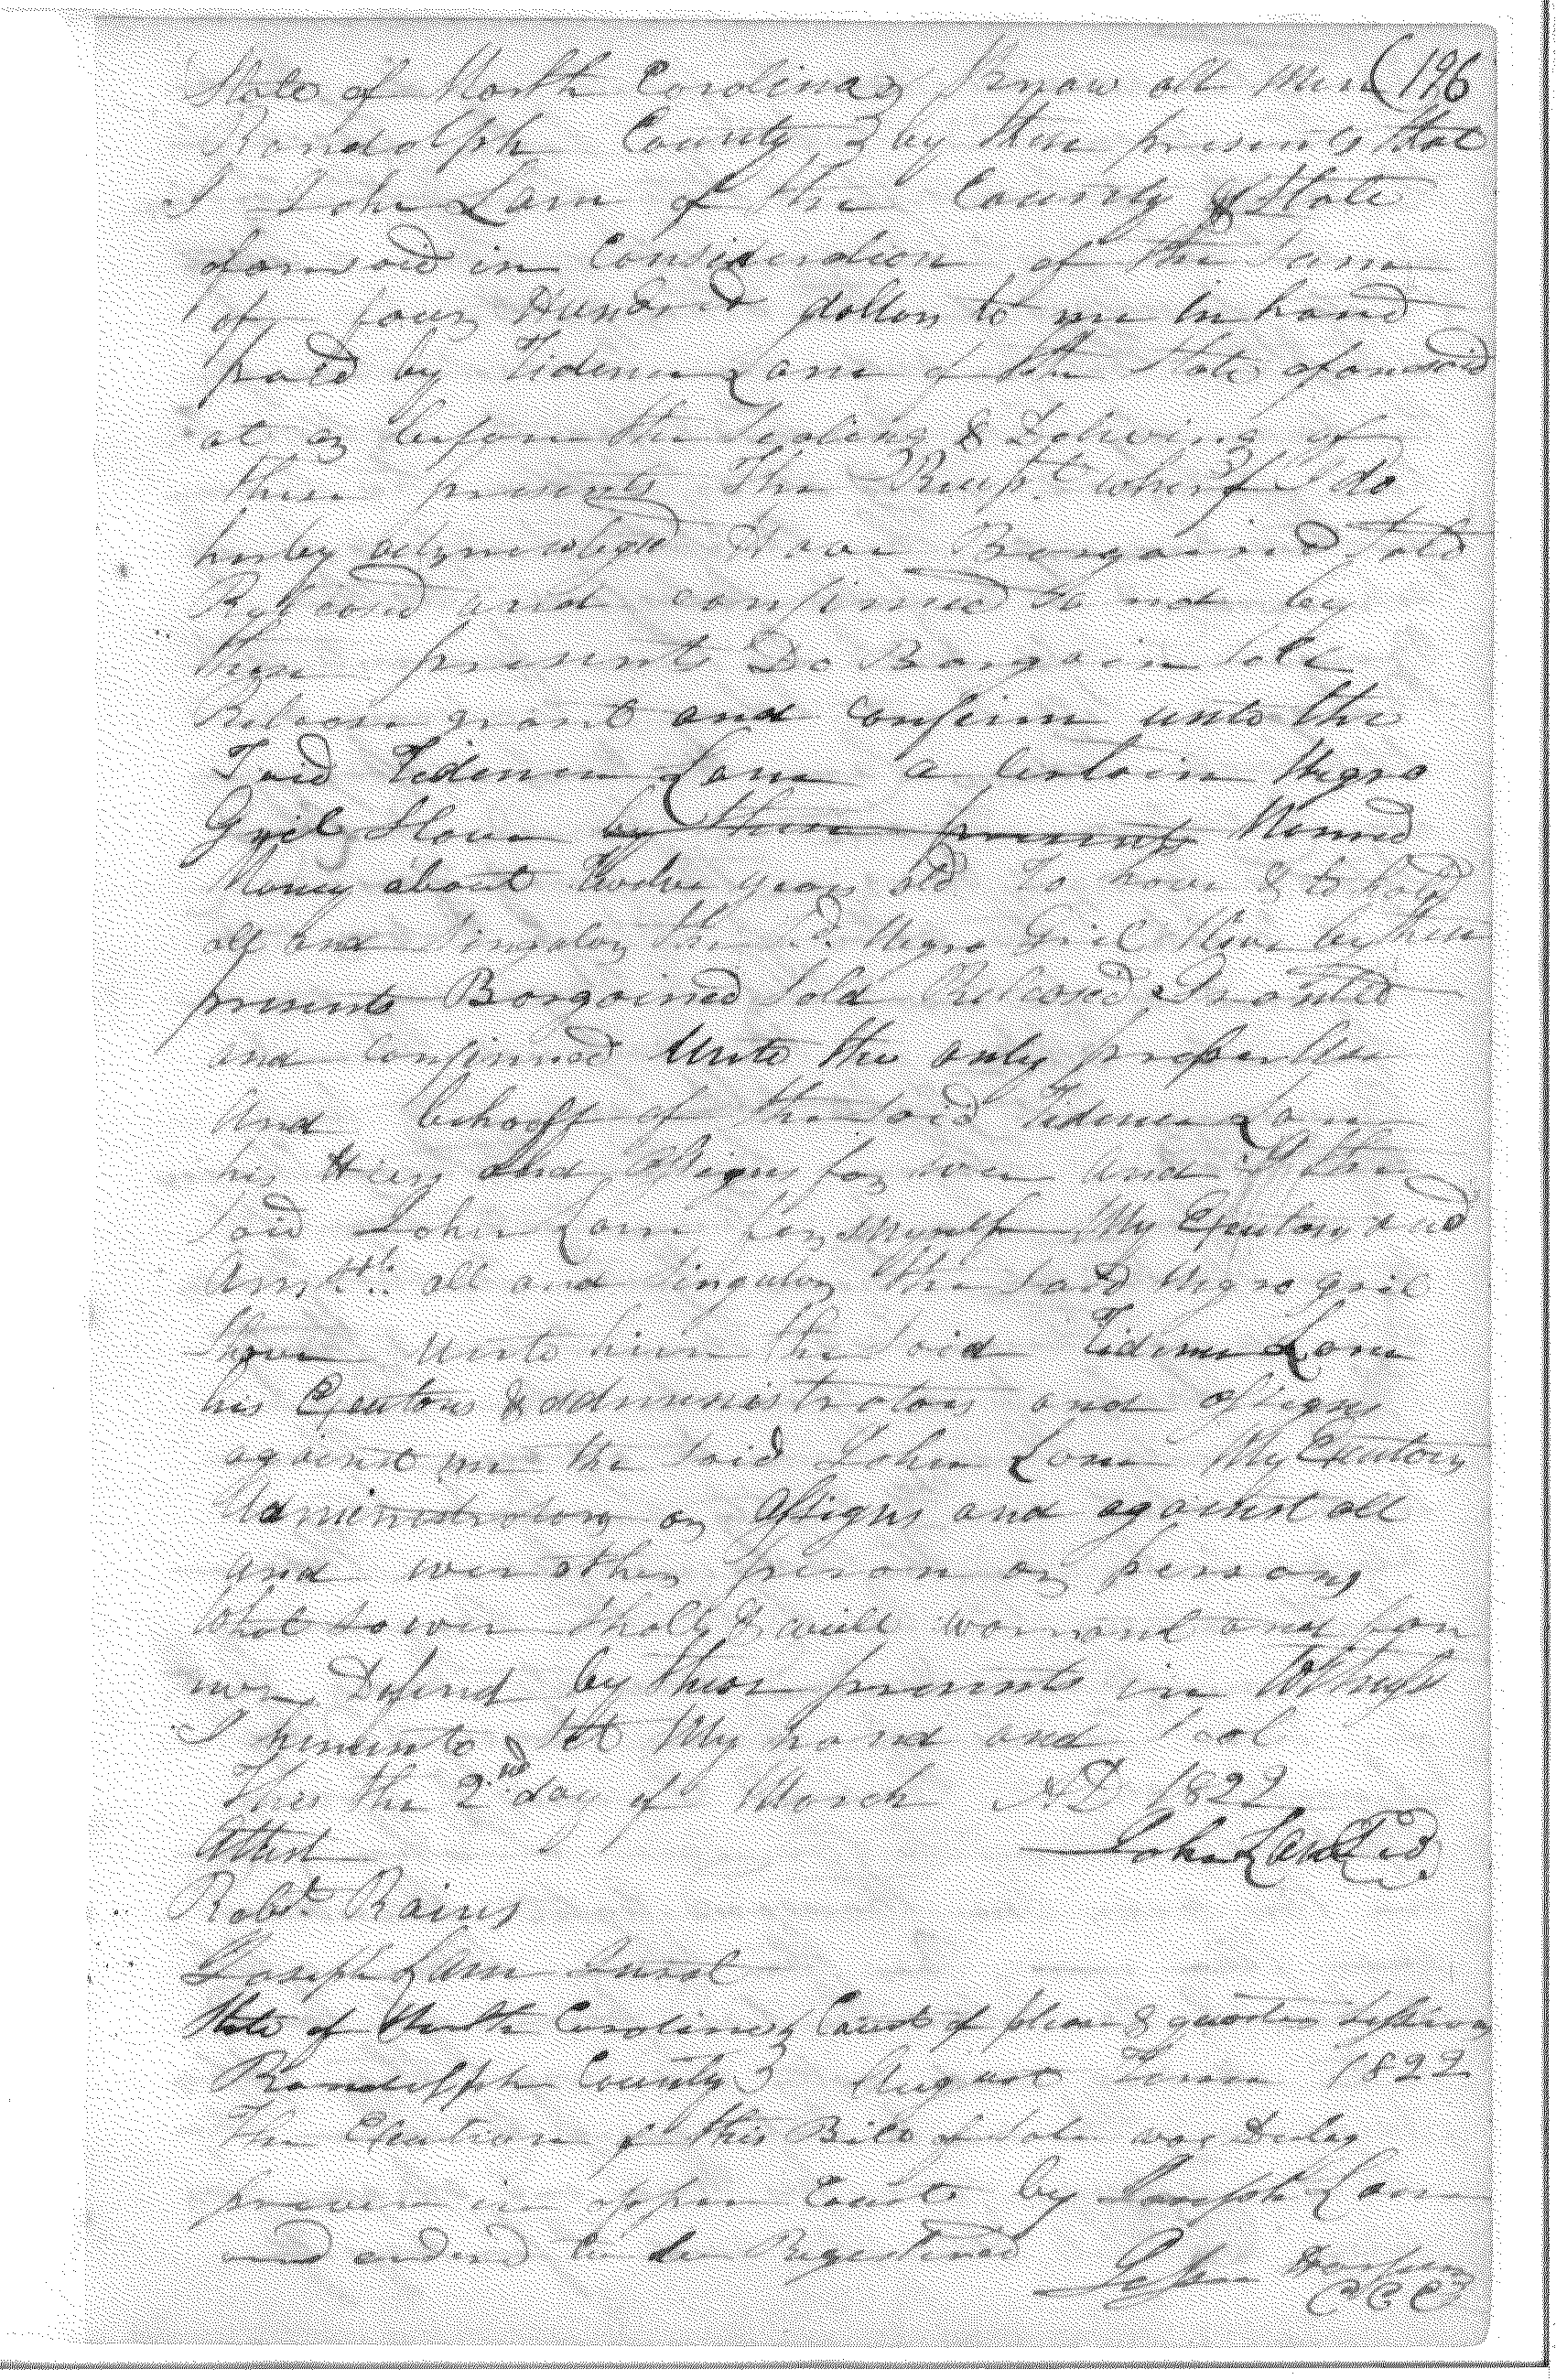 State of North Carolina } Know all Men (196
Randolph County } by these presents that
I John Lane of the County & State
aforesaid in Consideration of the Sum
of four Hundred dollars to me in hand
paid by Tidence Lane of the State aforesaid
at or before the Sealing & Delivering of
these presents the Receipt whereof I do
hereby acknowledge have Bargained Sold
Released and confirmed & and by
these present Do Bargain Sell
Release grant and confirm unto the
Said Tidence Lane a certain Negro
Girl Slave by these presents Named
about twelve years old To have & to hold
all and Singular the sd. Negro Girl Slave by these
presents Bargained Sold Released Granted
and confirmed unto the only proper Use
and behooff of the Said Tidence Lane
his Heirs and Assigns for ever and I the
Said John Lane for Myself My Executors and
all and Singular the Said Negro girl
Slave unto him the Said Tidence Lane
his Executors & administrators and assigns
against me the Said John Lane My Executors
Administrators or Assigns and against all
and ever other person or persons
Whatsoever shall & will warrand and for
ever Defend by these presents in Witness
I hereunto Set My hand and Seal
this the 2nd day of March AD 1822
Attest John Lane
Robt. Rains
Joseph Lane Jurat
State of North Carolina } Court of pleas & quarter Sessions
Randolph County } August Term 1822
The Execution of this Bill of Sale was Duly
proven in open Court by Joseph Lane
and ordered to be Registered
Jesse Harper
CCC